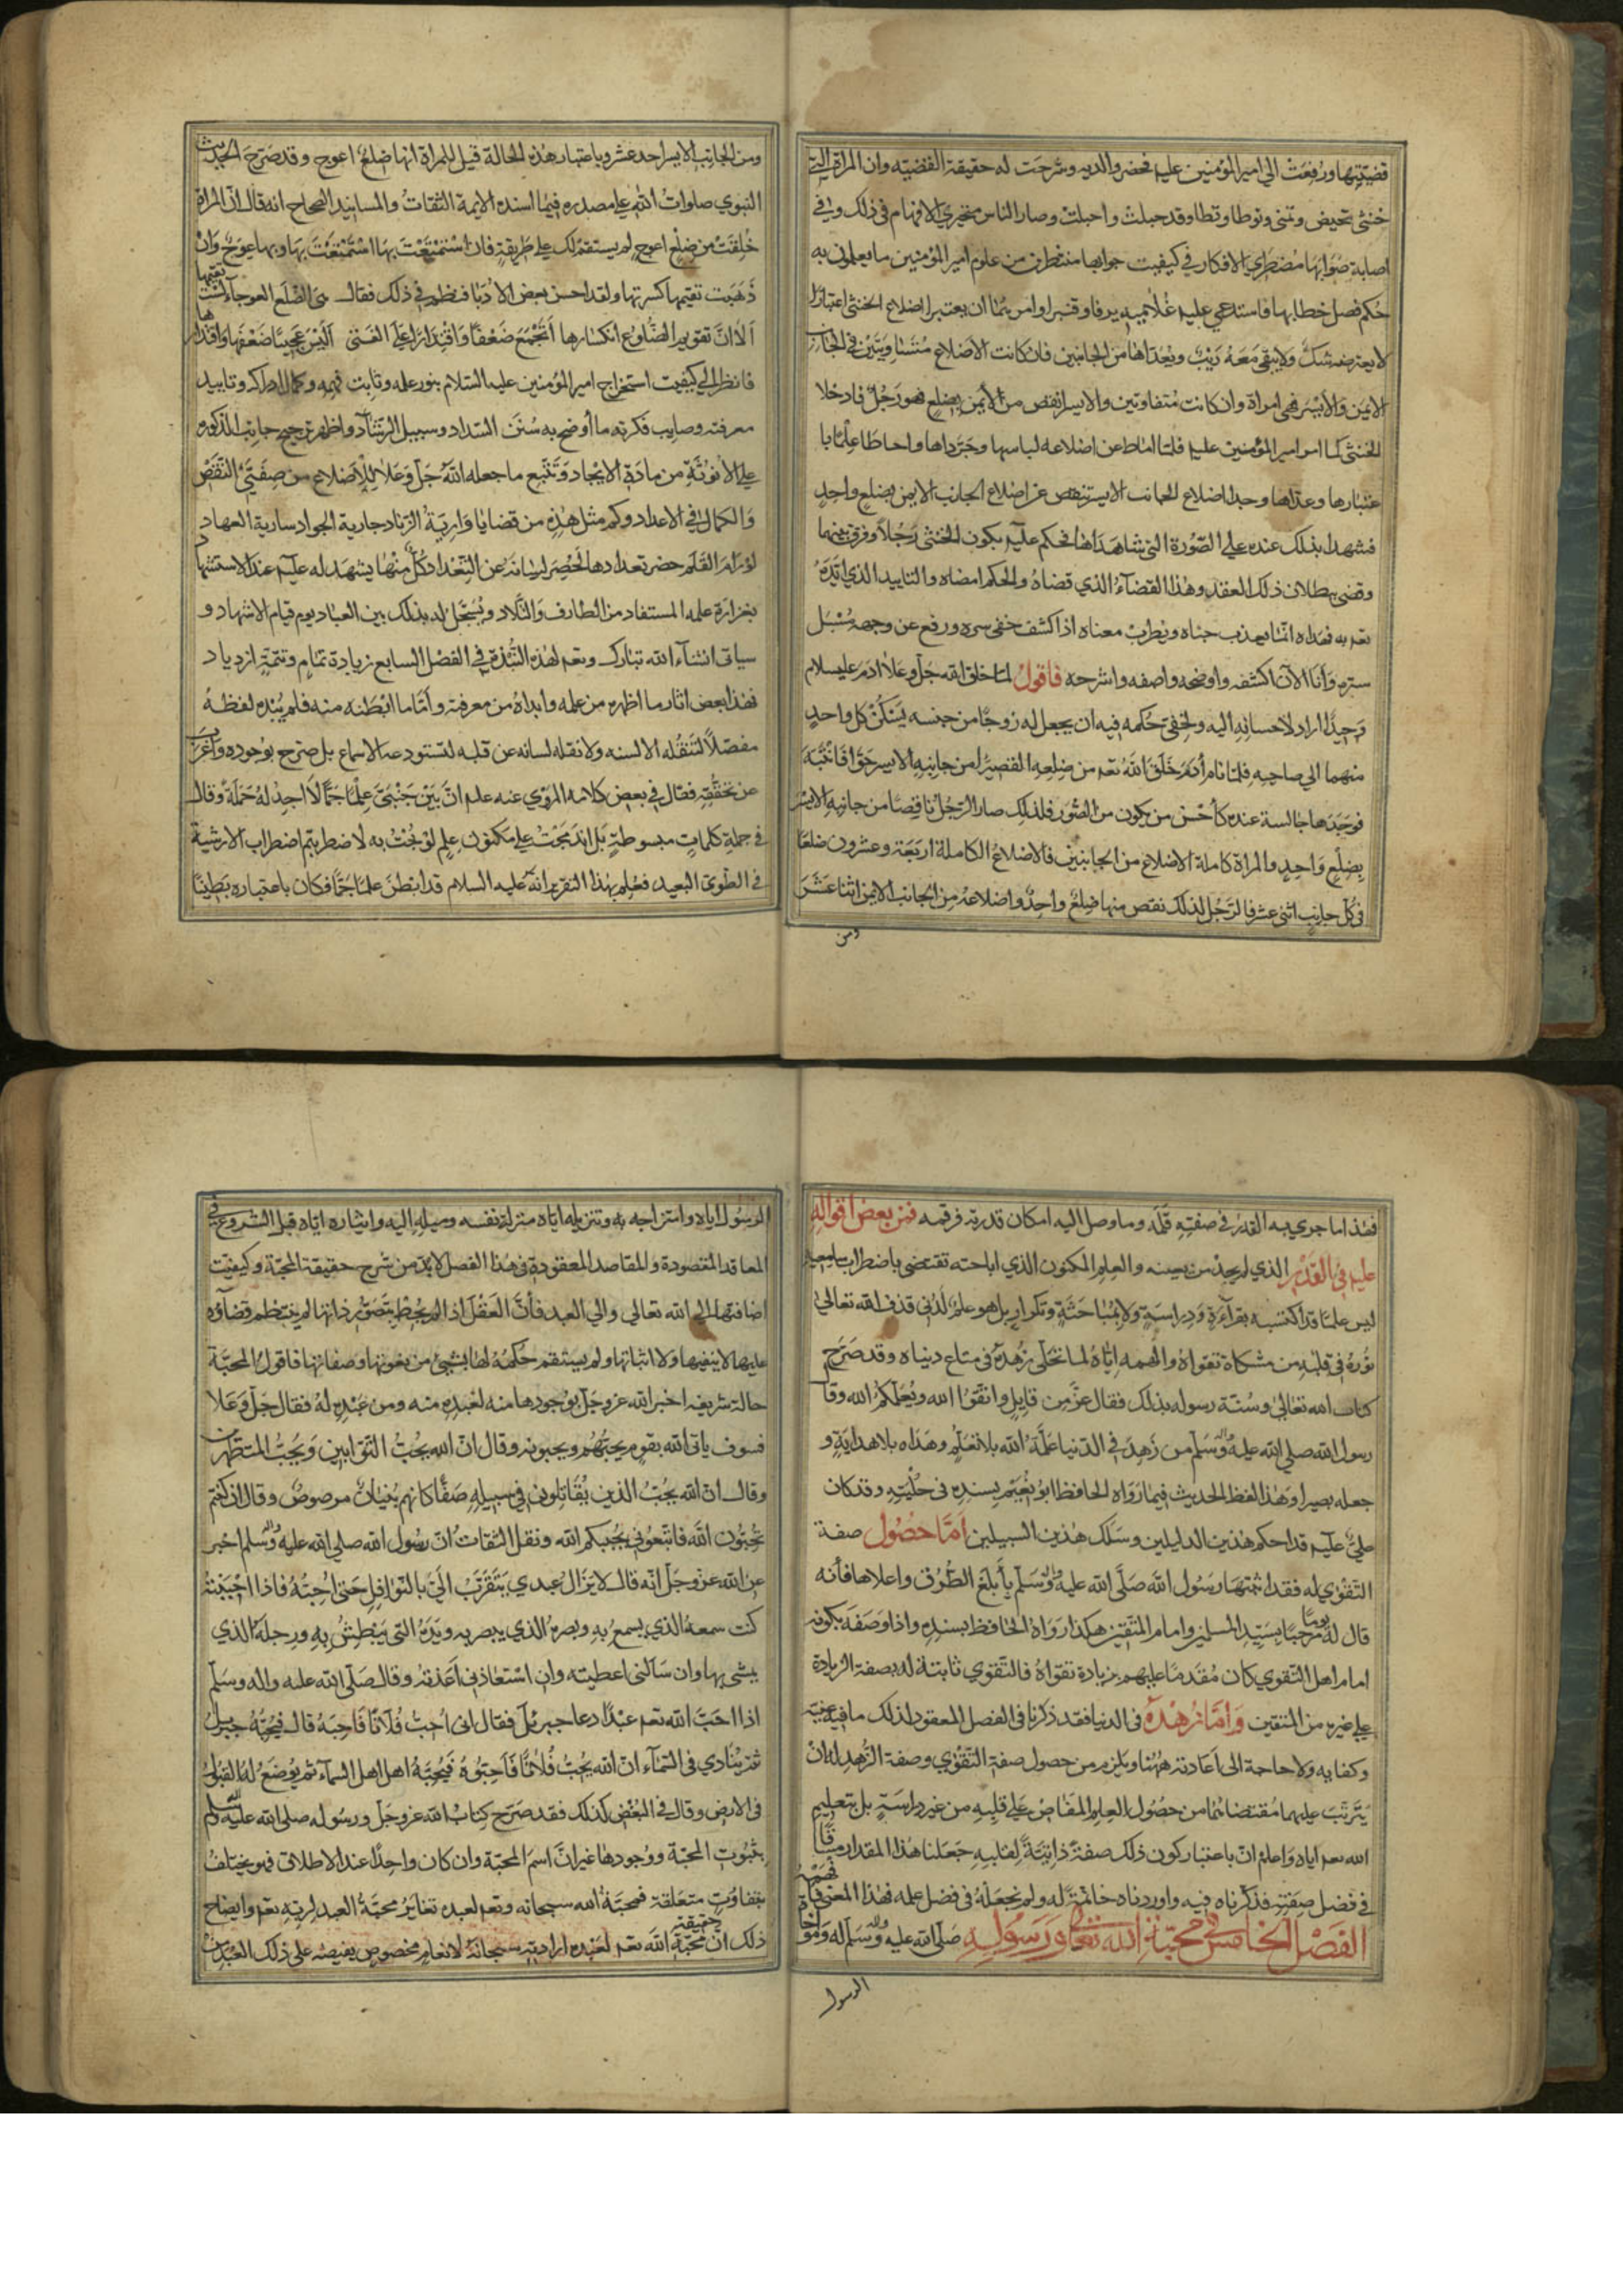 قضيتها ورفعت الي امير المؤمنين عليه فحضر والديه وشرحت له حقيقة القضيه وان المراة التي
خنثي تحيض وتمني وتوطا وتطا وقد حبلت واحبلت وصار الناس متحيري الافهام في ذلك وفي
اصابة صوابها مضطربي الافكار في كيفيت جوابها منتظرين من علوم امير المؤمنين ما يعلمون به
حكم فصل خطابها فاستدعي عليه غلاميه يرفا وقنبر او امرهما ان يعتبر اضلاع الخنثي اعتبارا
لا يعترضه شك ولا يبقي معه ريب ويعداها من الجانبين فان كانت الاضلاع متساويتين في الجانب
الايمن والايسر فهي امراة وان كانت متفاوتين والايسر انقص من الايمن بضلع فهو رجل فادخلا
الخنثي كما امر امير المؤمنين عليه فلما اماطا عن اضلاعه لباسها وجرداها واحاطا علما با
عتبارها وعداها وجدا اضلاع الجانب الايسر تنقص عن اضلاع الجانب الايمن بضلع واحد
فشهدا بذلك عنده علي الصورة التي شاهداها فحكم عليه بكون الخنثي رجلا وفرق بينهما
وقضي ببطلان ذلك العقد وهذا القضآء الذي قضاه والحكم امضاه والتاييد الذي ايده
به فهداه انما يعذب جناه ويطرب معناه اذا كشف خفي سره ورفع عن وجهه مسبل
ستره وانا الآن اكشفه واوضحه واصفه واشرحه فاقول لما خلق الله جل وعلا ادم عليسلام
وحيدا اراد لاحسانه اليه ولخفي حكمه فيه ان يجعل له زوجا من جنسه يسكن كل واحد
منهما الي صاحبه فلما نام ادم خلق الله تعم من ضلعه القصيرا من جانبه الايسر حوا فانتبه
فوجدها جالسة عنده كاحسن من يكون من الصور فلذلك صار الرجل ناقصا من جانبه الايسر
بضلع واحد والمراة كاملة الاضلاع من الجانبين فالاضلاع الكاملة اربعة وعشرون ضلعا
في كل جانب اثني عشر فالرجل لذلك نقص منها ضلع واحد واضلاعه من الجانب الايمن اثنا عشر
ومن
ومن الجانب الايسر احد عشر وباعتبار هذه الحالة قيل للمراة انها ضلع اعوج وقد صرح الحديث
النبوي صلوات الله علي مصدره فيما اسنده الايمة الثقات والمسانيد الصحاح انه قال ان المراة
خلقت من ضلع اعوج لم يستقم لك علي طريقة فان استمتعت بها استمتعت بها وبها عوج وان
ذهبت تقيمها كسرتها ولقد احسن بعض الادبا فنظم في ذلك فقال هي الضلع العوجآ لست تقيمها
الا ان تقويم الضلوع انكسارها اتجمع ضعفا واقتدارا علي الفتي اليس عجيبا ضعفها واقتدارها
فانظر الي كيفيت استخراج امير المؤمنين عليه السلام بنور علمه وثاقب فهمه وكمال ادراكه وتاييد
معرفته وصايب فكرته ما أوضح به سنن السداد وسبيل الرشآد واظهر ترجيح جانب الذكوره
علي الأنوثة من مادة الايجاد وتتبع ما جعله الله جل وعلا للاضلاع من صفتي النقص
والكمال في الاعداد وكم مثل هذه من قضايا وارية الزناد جارية الجواد سارية العهاد
لو رام القلم حضر تعدادها لحصر لسانه عن التعداد كل منها يشهد له عليه عند الاستشهاد
بغزارة علمه المستفاد من الطارف والتلاد ويسجل له بذلك بين العباد يوم قيام الاشهاد و
سياتي انشآء الله تبارك وتعم لهذه النبذة في الفصل السابع زيادة تمام وتتمة ازدياد
فهذا بعض اثار ما اظهره من علمه وابداه من معرفته وأما ما ابطنه منه فلم يبده لفظه
مفصلا لتنقله الالسنه ولا نقله لسانه عن قلبه لتستودعه الاسماع بل صرح بوجوده واعرب
عن تحققه فقال في بعض كلامه المروي عنه عليه ان بين جنبي علما جما لا اجد له حملة وقال
في جملة كلمات مبسوطة بل اندمجت علي مكنون علم لو بحت به لاضطربتم اضطراب الارشية
في الطوي البعيد فعلم بهذا التقرير انه عليه السلام قد ابطن علما جما فكان باعتباره بطينا
فهذا ما جري به القدر في صفته قلمه وما وصل اليه امكان قدرته فرقمه فمن بعض اقواله
عليه في القدير الذي لم يجد من يعينه والعلم المكنون الذي اباحته تقتضي باضطراب سامعيه
ليس علما قد اكتسبه بقرآءة ودراسة ولا بمباحثة وتكرار بل هو علم لدني قذف الله تعالي
نوره في قلبه من مشكاة تقواه والهمه اياه لما تحلي زهده في متاع دنياه وقد صرح
كتاب الله تعالي وسنة رسوله بذلك فقال عز من قايل واتقوا الله ويعلمكم الله وقا
رسول الله صلي الله عليه واله وسلم من زهد في الدنيا علمه الله بلا تعلم وهداه بلا هداية و
جعله بصيرا وهذا لفظ الحديث فيما رواه الحافظ ابو نعيم بسنده في حليته وقد كان
علي عليه قد احكم هذين الدليلين وسلك هذين السبيلين اما حصول صفة
التقوي له فقد اثبتها رسول الله صلي الله عليه واله وسلم بأبلغ الطرق واعلاها فأنه
قال له يوما مرحبا بسيد المسلمين وامام المتقين هكذا رواه الحافظ بسنده واذا وصفه بكونه
امام اهل التقوي كان مقدما عليهم بزيادة تقواه فالتقوي ثابتة له بصفة الزيادة
علي غيره من المتقين واما زهده في الدنيا فقد ذكرنا في الفصل المعقود لذلك ما فيه غنية
وكفايه ولا حاجة الي اعادته ههنا ويلزم من حصول صفة التقوي وصفة الزهد له ان
يترتب عليهما مقتضاهما من حصول العلم المفاض علي قلبه من غير دراسة بل بتعليم
الله تعم اياه واعلم ان باعتبار كون ذلك صفة ذاتية لقلبه جعلنا هذا المقدار
في فضل صفته فذكرناه فيه واوردناه خاتمة له ولم نجعله في فضل علمه فهذا المعني
الفصل الخامس في محبة الله تعالي ورسوله صلي الله عليه واله وسلم له ومواخاة
الرسول
الرسول اياه وامتزاجه به وتنزيله اياه منزلة نفسه وميله اليه وايثاره اياه قبل الشروع في
المعاقد المقصودة والمقاصد المعقودة في هذا الفصل لابد من شرح حقيقة المحبة وكيفيت
اضافتها الي الله تعالي والي العبد فأن العقل اذا لم يحط بتصور ذاتها لم ينتظم قضاؤه
عليها لا بنفيها ولا اثباتها ولم يستقم حكمه لها بشيئ من نعوتها وصفاتها فاقول المحبة
حالة شريفه اخبر الله عز وجل بوجودها منه لعبده منه ومن عبده له فقال جل وعلا
فسوف ياتي الله بقوم يحبهم ويحبونه وقال ان الله يحب التوابين ويحب المتطهرين
وقال ان الله يحب الذين يقاتلون في سبيله صفا كانهم بنيان مرصوص وقال ان كنتم
تحبون الله فاتبعوني يحببكم الله ونقل الثقات ان رسول الله صلي الله عليه واله وسلم اخبر
عن الله عز وجل انه قال لا يزال عبدي يتقرب الي بالنوافل حتي احبه فاذا احببته
كنت سمعه الذي يسمع به وبصره الذي يبصر به ويده التي يبطش به ورجله الذي
يمشي بها وان سألني اعطيته وان استعاذني اعذته وقال صلي الله عليه واله وسلم
اذا احب الله تعم عبدا دعا جبرئل فقال اني احب فلانا فاحبه قال فيحبه جبريل
ثم ينادي في السمآء ان الله يحب فلانا فاحبوه فيحبه اهل اهل السمآء ثم يوضع له القبول
في الارض وقال في البغض كذلك فقد صرح كتاب الله عز وجل ورسوله صلي الله عليه واله وسلم
بثبوت المحبة ووجودها غير ان اسم المحبة وان كان واحدا عند الاطلاق فهو يختلف
بتفاوت متعلقة فمحبة الله سبحانه وتعم لعبده تغاير محبة العبد لربه تعم وايضاح
ذلك ان حقيقة محبة الله تعم لعبده ارادته سبحانه لانعام مخصوص يفيضه علي ذلك العبد من